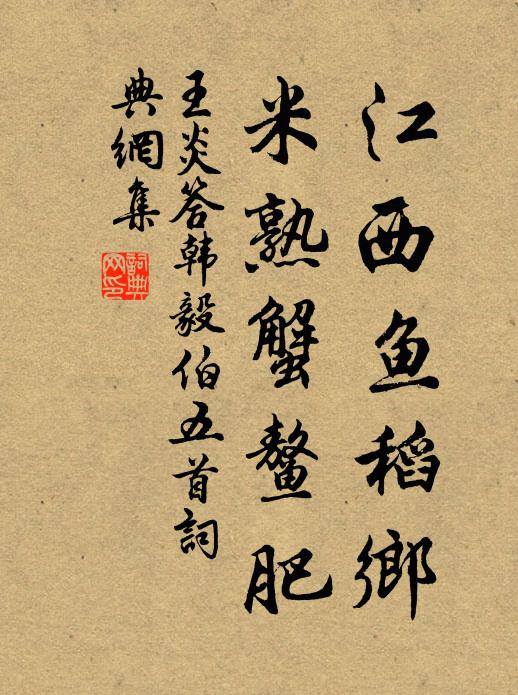 江西鱼稻鄉
米熟蟹螯肥
王炎答韩毅伯五首詞
典網集
詞典网印